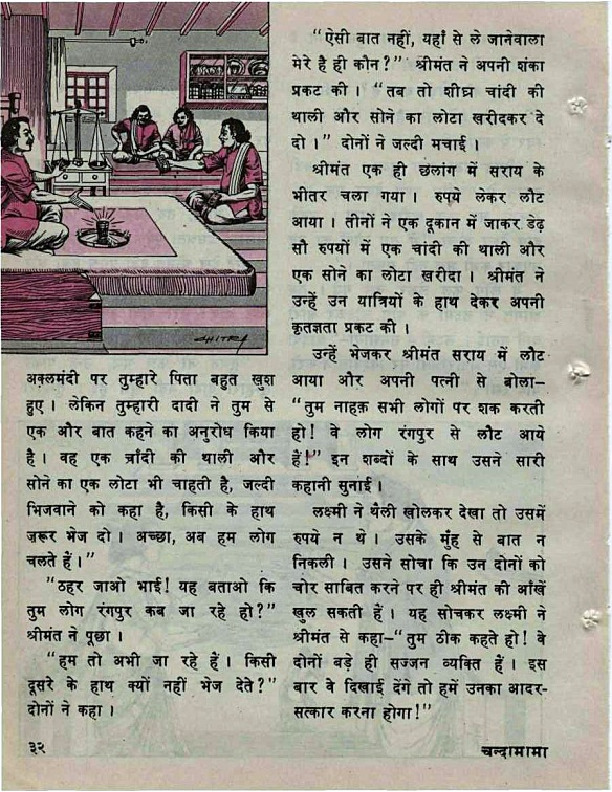 CHITRA
अक़्लमंदी पर तुम्हारे पिता बहुत खुश
हुए । लेकिन तुम्हारी दादी ने तुम से
एक और बात कहने का अनुरोध किया
है । वह एक चाँदी की थाली और
सोने का एक लोटा भी चाहती है, जल्दी
भिजवाने को कहा है, किसी के हाथ
ज़रूर भेज दो । अच्छा, अब हम लोग
चलते हैं ।"
"ठहर जाओ भाई! यह बताओ कि
तुम लोग रंगपुर कब जा रहे हो?"
श्रीमंत ने पूछा ।
"हम तो अभी जा रहे हैं । किसी
दूसरे के हाथ क्यों नहीं भेज देते?"
दोनों ने कहा ।
"ऐसी बात नहीं, यहाँ से ले जानेवाला
मेरे है ही कौन?" श्रीमंत ने अपनी शंका
प्रकट की । "तब तो शीघ्र चांदी की
थाली और सोने का लोटा खरीदकर दे
दो ।" दोनों ने जल्दी मचाई ।
श्रीमंत एक ही छलांग में सराय के
भीतर चला गया । रुपये लेकर लौट
आया । तीनों ने एक दूकान में जाकर डेढ़
सौ रुपयों में एक चांदी की थाली और
एक सोने का लोटा खरीदा । श्रीमंत ने
उन्हें उन यात्रियों के हाथ देकर अपनी
कृतज्ञता प्रकट की ।
उन्हें भेजकर श्रीमंत सराय में लौट
आया और अपनी पत्नी से बोला–
"तुम नाहक़ सभी लोगों पर शक करती
हो! वे लोग रंगपुर से लौट आये
हैं!" इन शब्दों के साथ उसने सारी
कहानी सुनाई ।
लक्ष्मी ने थैली खोलकर देखा तो उसमें
रुपये न थे । उसके मुँह से बात न
निकली । उसने सोचा कि उन दोनों को
चोर साबित करने पर ही श्रीमंत की आँखें
खुल सकती हैं । यह सोचकर लक्ष्मी ने
श्रीमंत से कहा–"तुम ठीक कहते हो! वे
दोनों बड़े ही सज्जन व्यक्ति हैं । इस
बार वे दिखाई देंगे तो हमें उनका आदर-
सत्कार करना होगा!"
३२
चन्दामामा